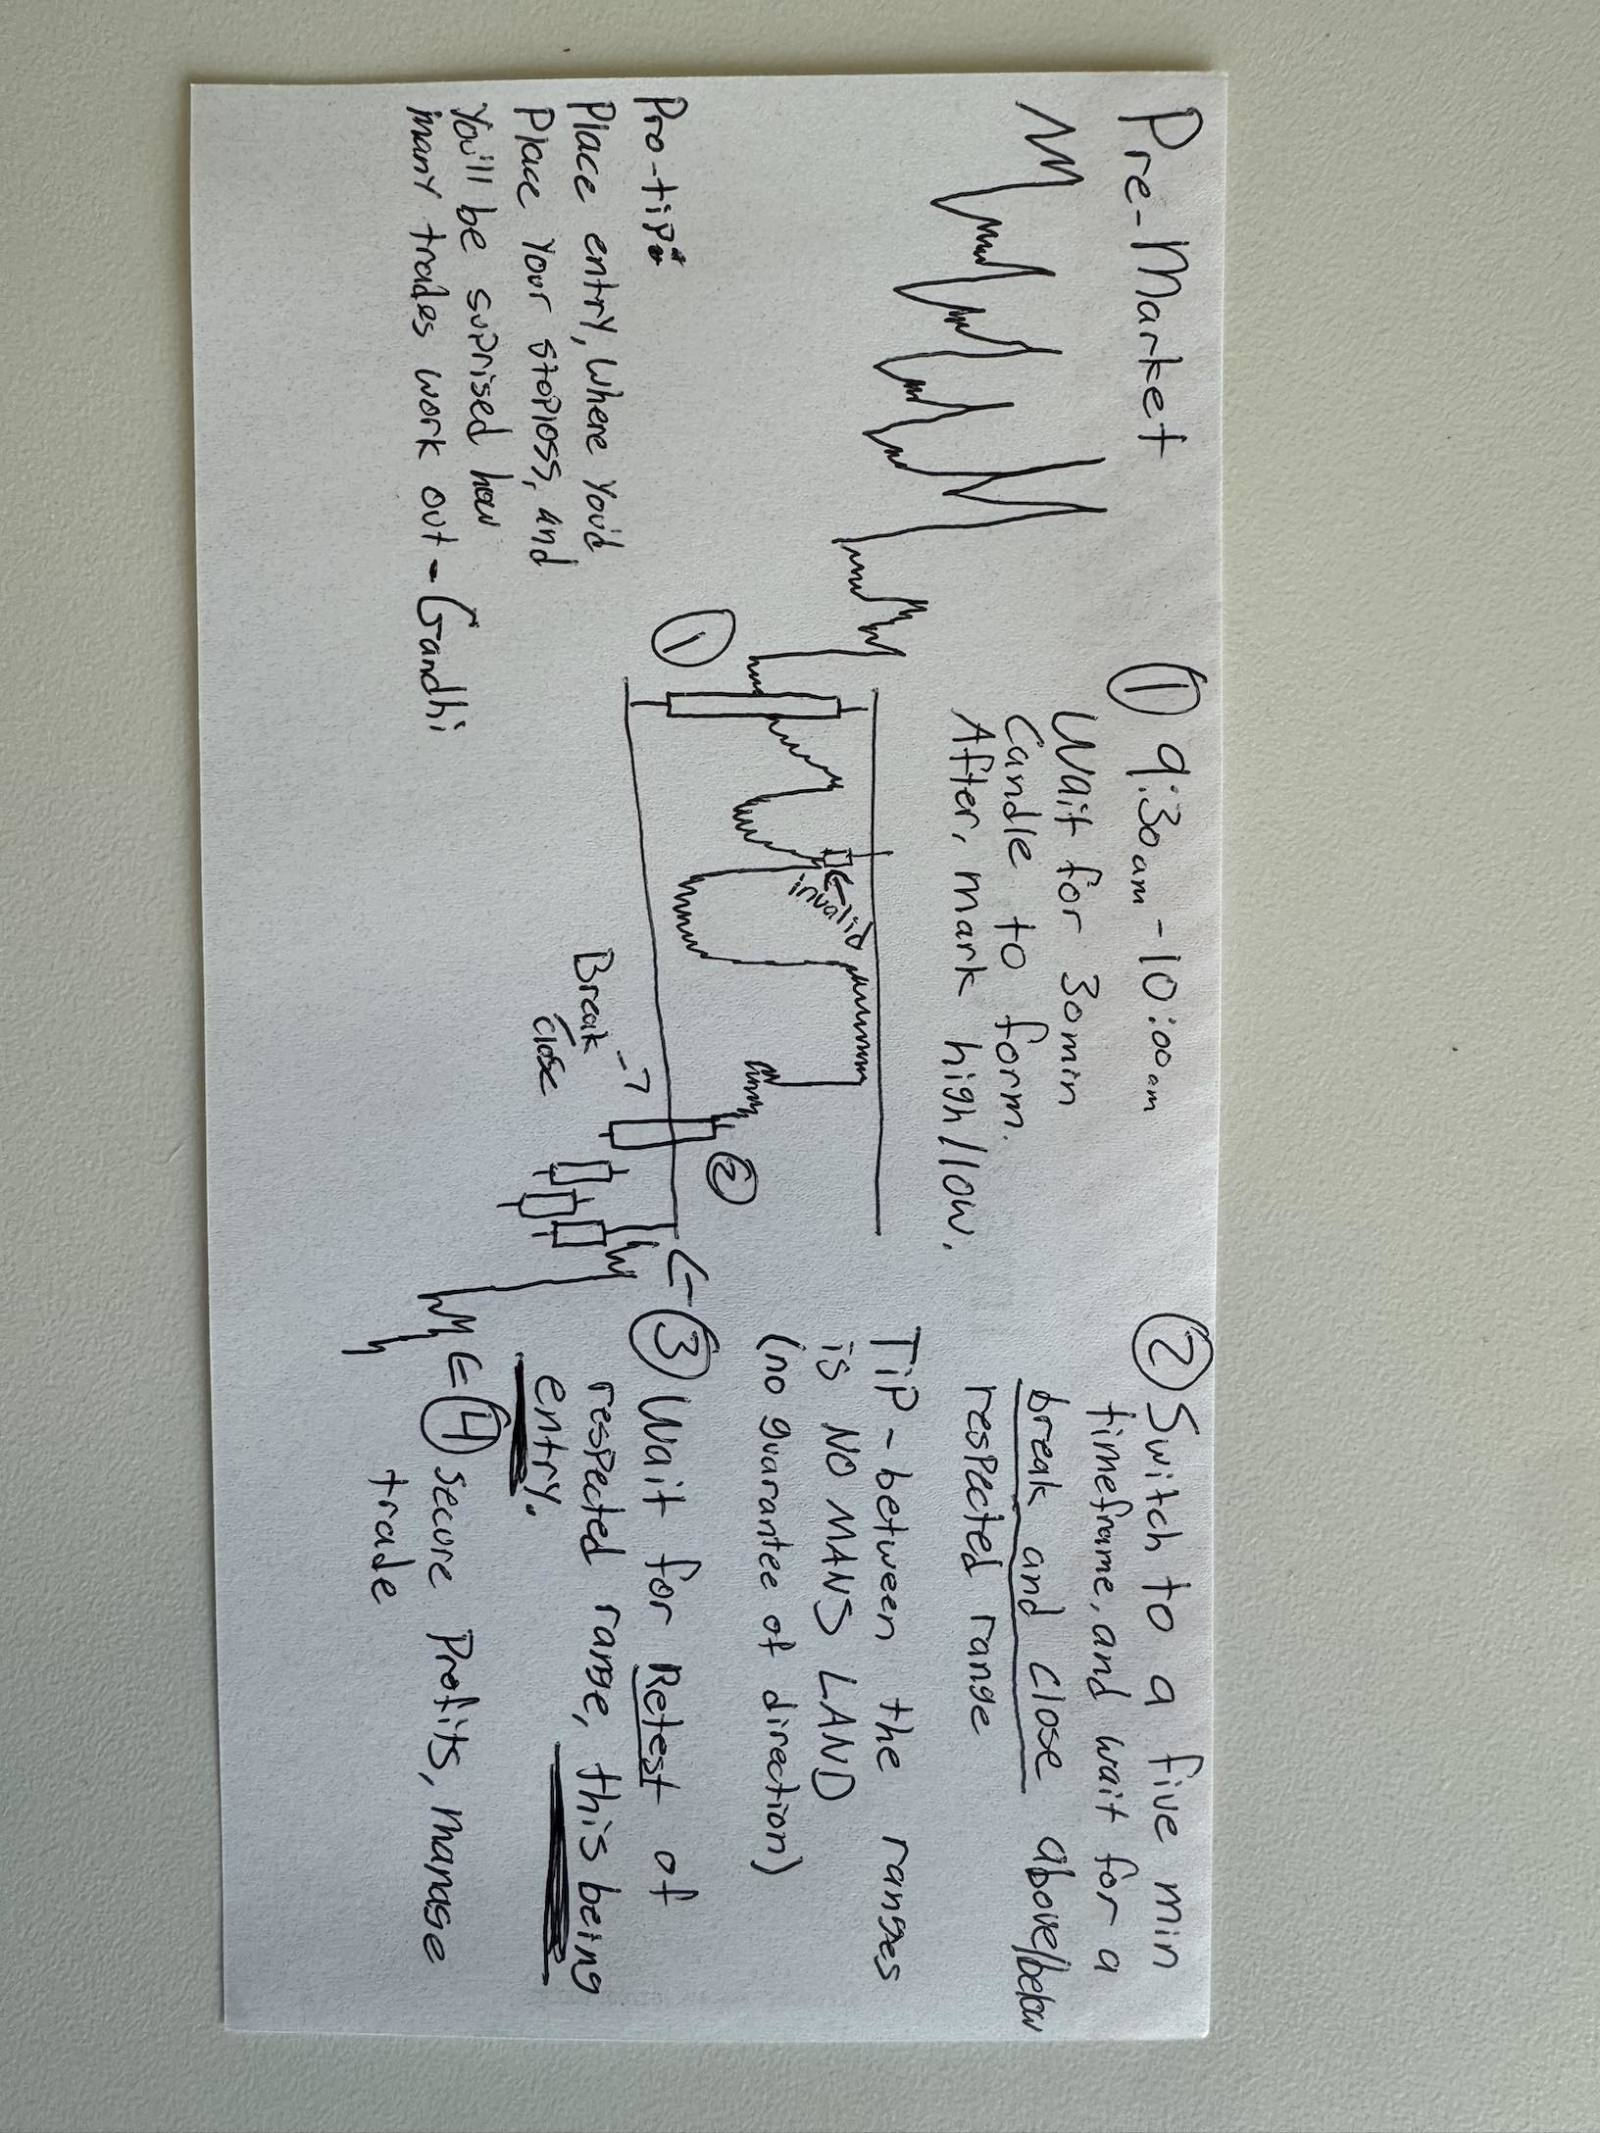 Pre-Market
① 9:30am - 10:00am
Wait for 30min
Candle to form.
After, mark high/low.
② Switch to a five min
timeframe, and wait for a
break and close above/below
respected range
TiP - between the ranges
is NO MANS LAND
(no guarantee of direction)
③ Wait for Retest of
respected range, this being
entry.
④ secure Profits, manage
trade
invalid
①
②
Break
close
Pro-tip:
Place entry, where you'd
Place your stoploss, and
You'll be suprised how
many trades work out - Gandhi